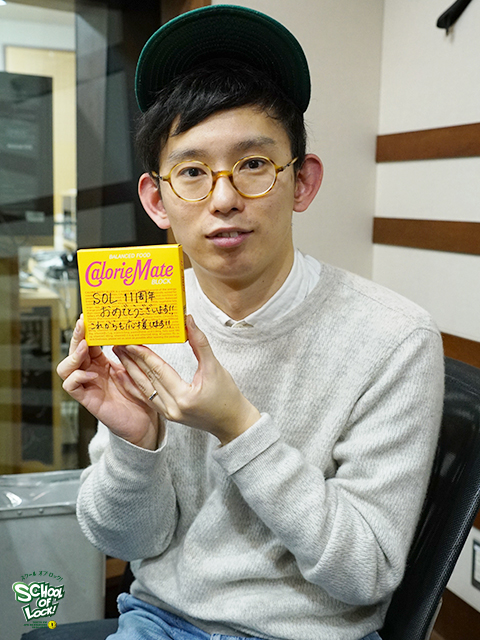 BALANCED FOOD
CalorieMate
BLOCK
SOL 11周年
おめでとうございまする!!
これからも応援しまする!!
スクール オブ ロック!
SCHOOL
OF
LOCK!